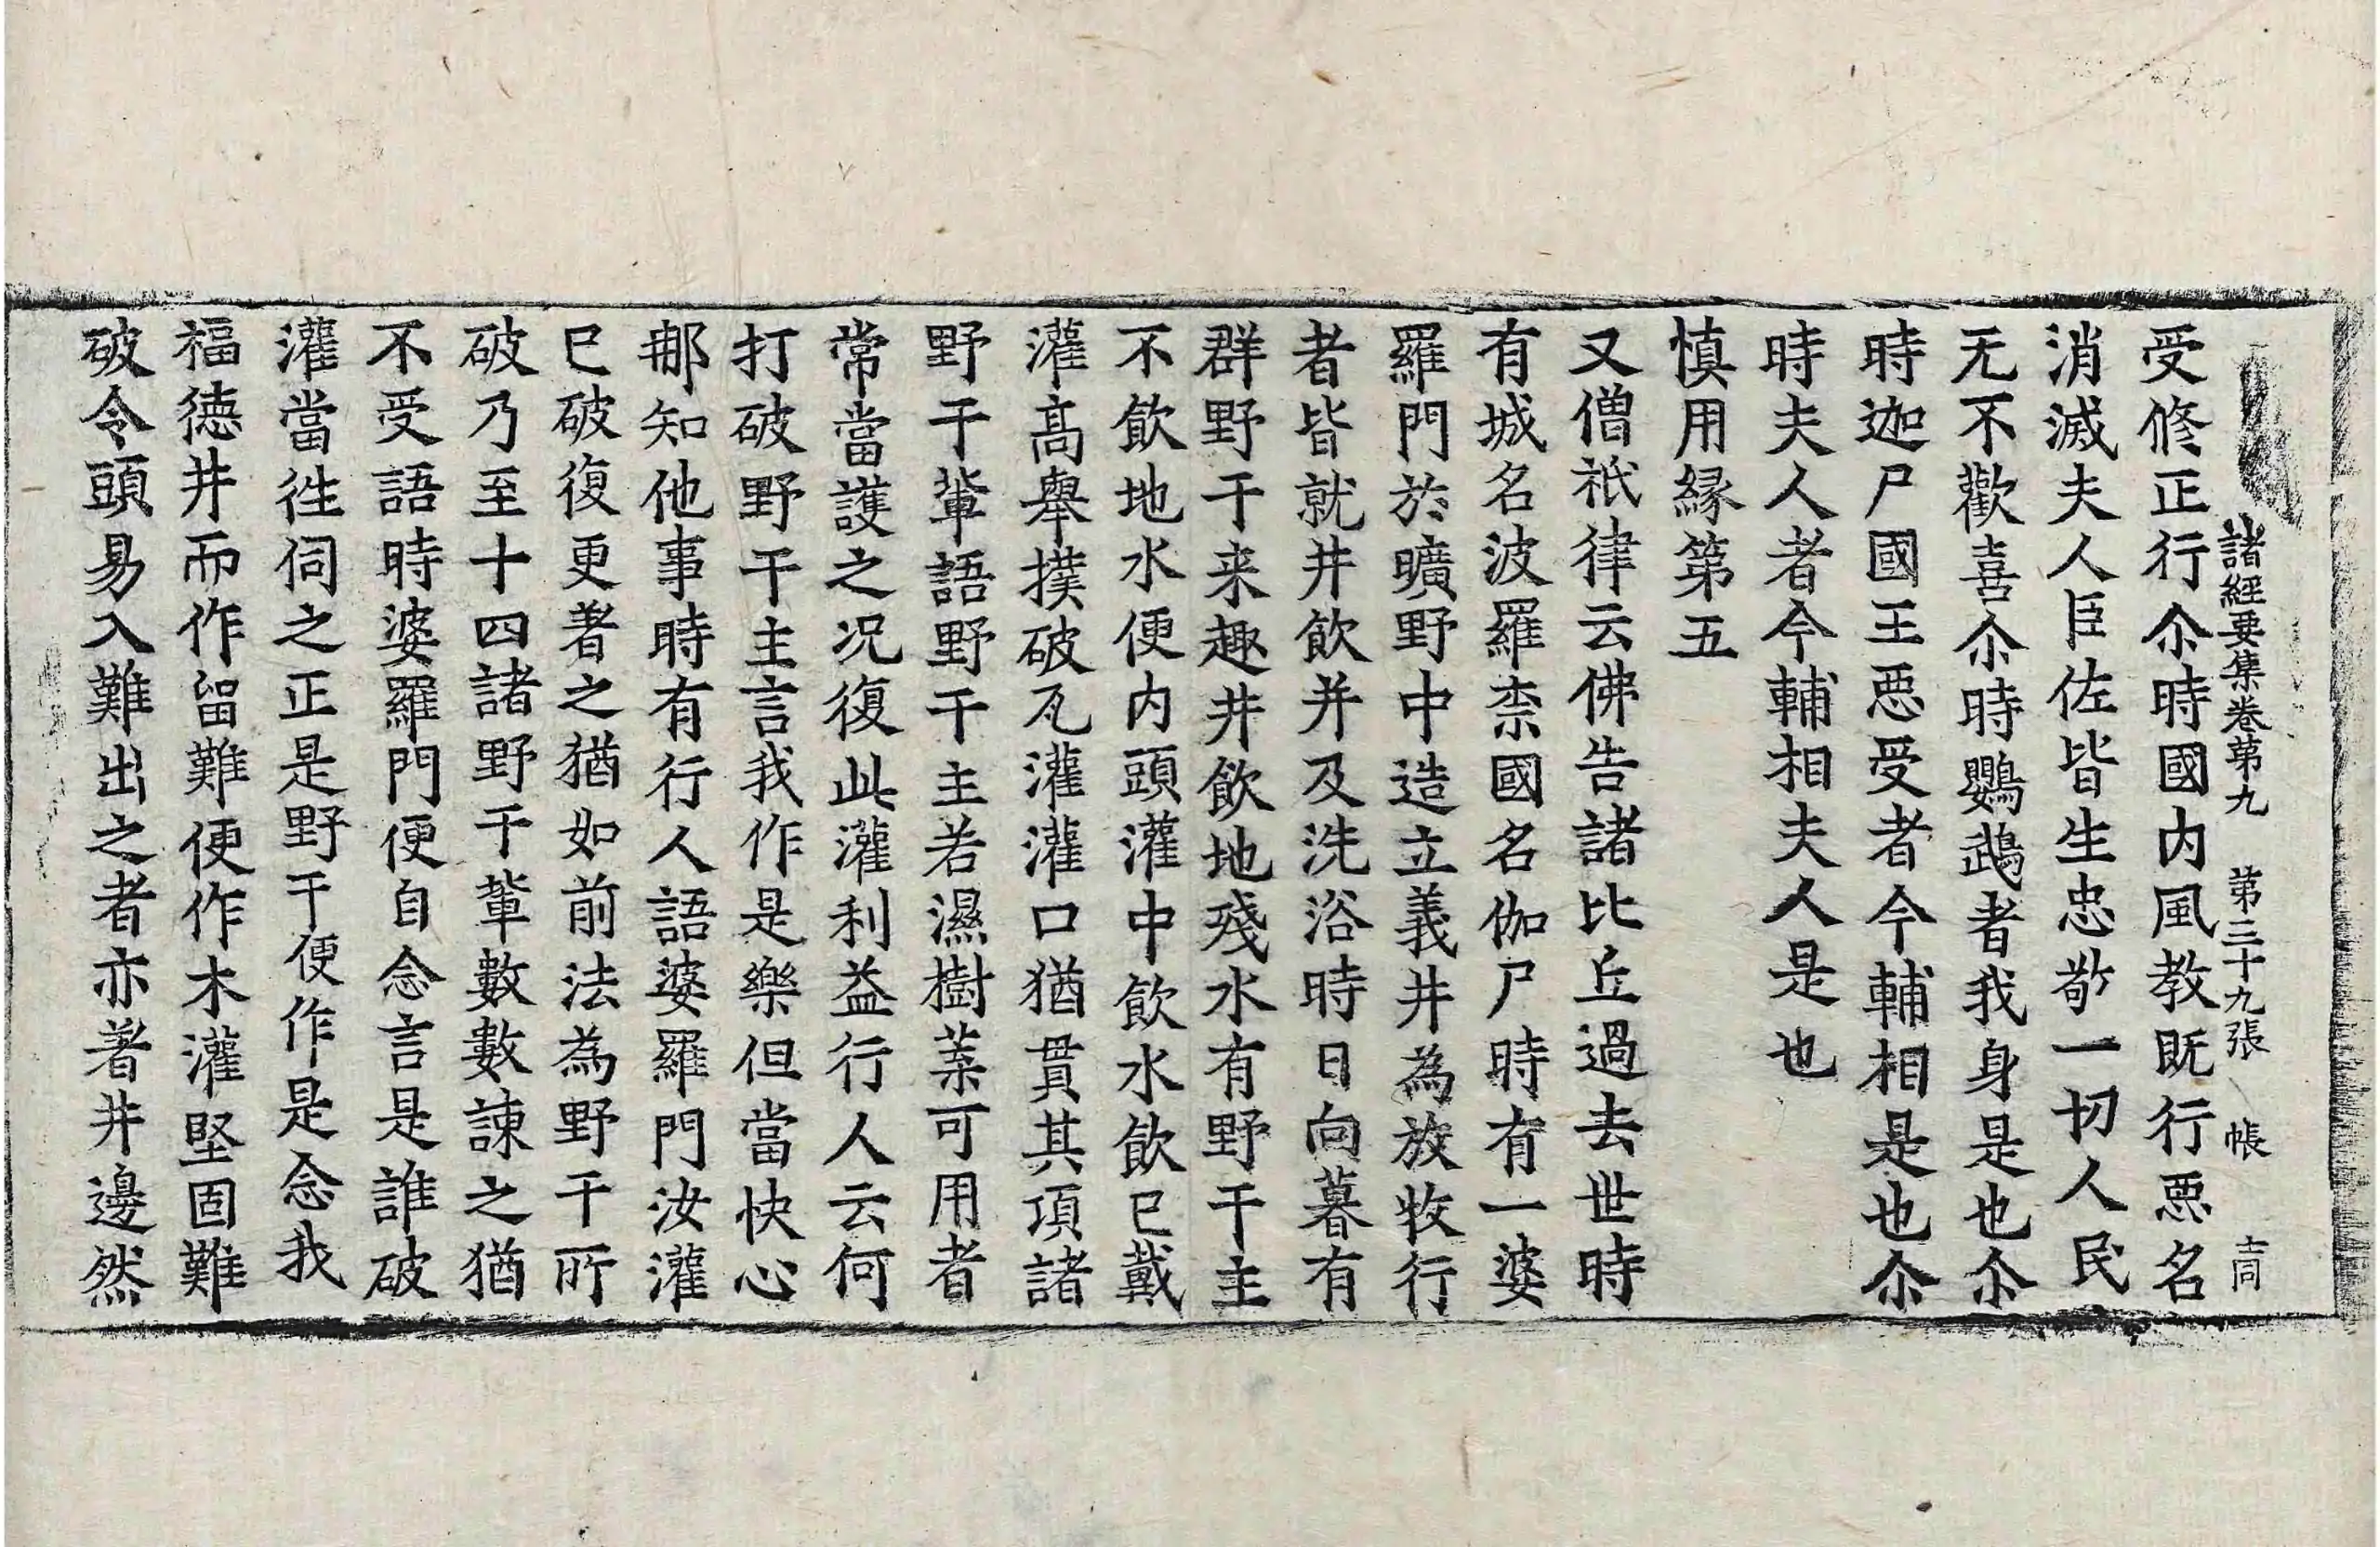 諸經要集卷第九 第三十九張 帳 士同
受修正行尒時國内風教既行惡名
消滅夫人臣佐皆生忠敬一切人民
无不歡喜尒時鸚鵡者我身是也尒
時迦尸國王惡受者今輔相是也尒
時夫人者今輔相夫人是也
慎用緣第五
又僧祇律云佛告諸比丘過去世時
有城名波羅柰國名伽尸時有一婆
羅門於曠野中造立義井為放牧行
者皆就井飲并及洗浴時日向暮有
群野干来趣井飲地殘水有野干主
不飲地水便内頭灌中飲水飲已戴
灌高舉撲破瓦灌灌口猶貫其項諸
野干輩語野干主若濕樹葉可用者
常當護之况復此灌利益行人云何
打破野干主言我作是樂但當快心
那知他事時有行人語婆羅門汝灌
已破復更著之猶如前法為野干所
破乃至十四諸野干輩數數諫之猶
不受語時婆羅門便自念言是誰破
灌當徃伺之正是野干便作是念我
福德井而作留難便作木灌堅固難
破令頭易入難出之者亦著井邊然